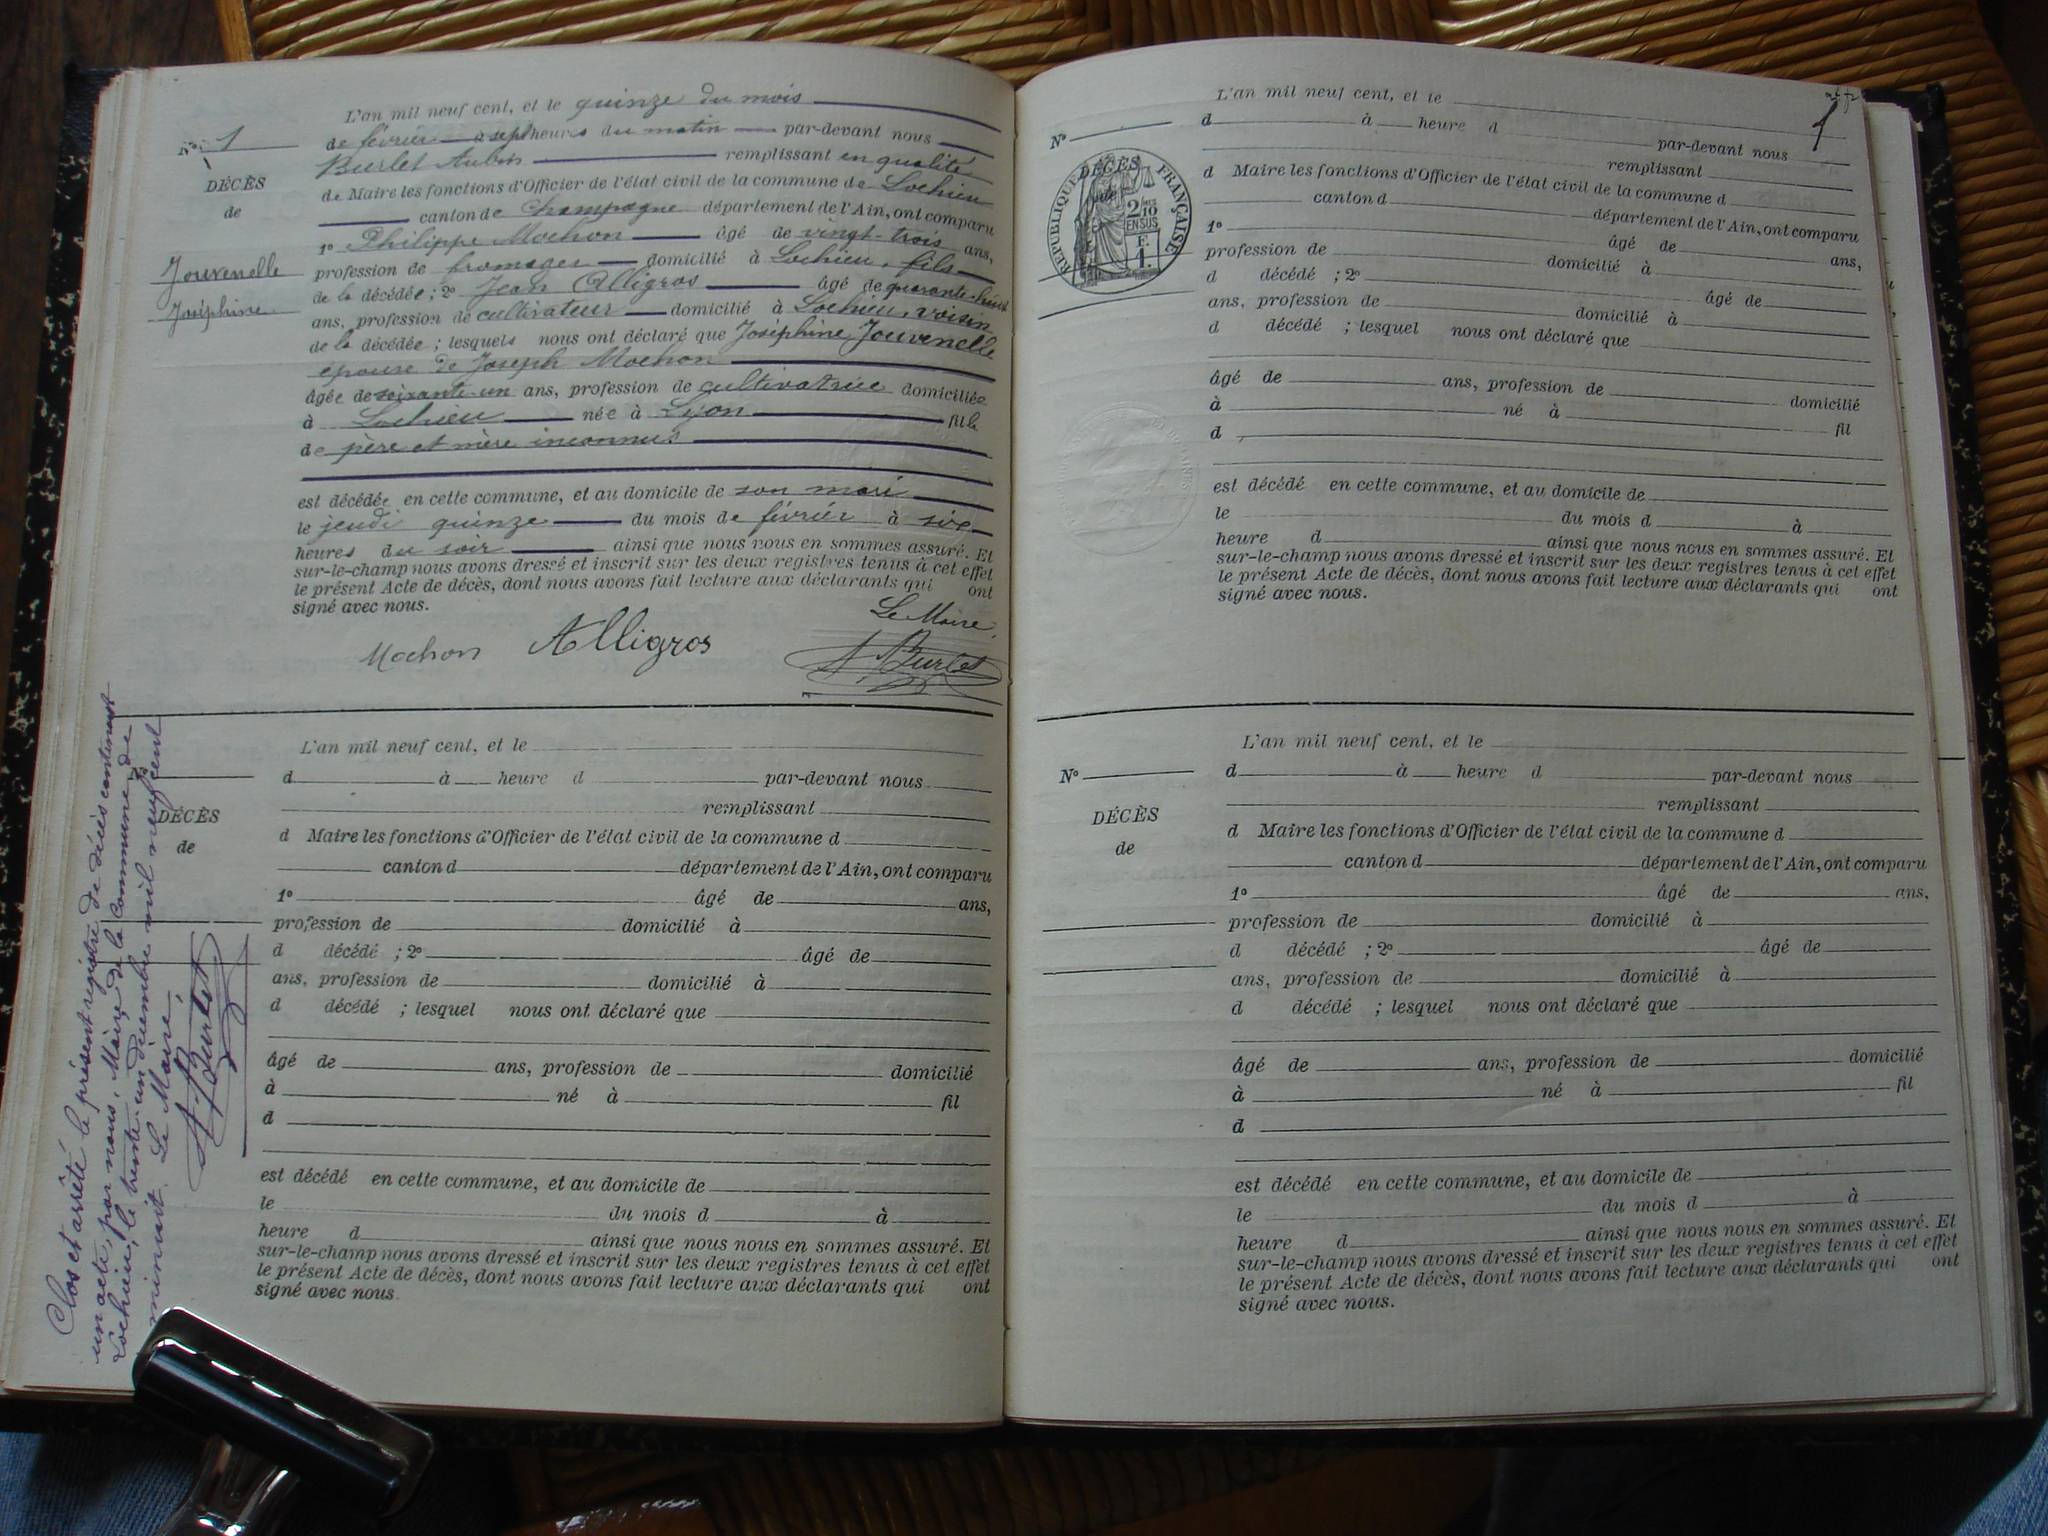 L'an mil neuf cent, et le quinze du mois
N° 1
de février à sept heures du matin par-devant nous
Burlet Aubin remplissant en qualité
DÉCÈS
de Maire les fonctions d'Officier de l'état civil de la commune de Lochieu
de
canton de Champagne département de l'Ain, ont comparu
1° Philippe Mochon âgé de vingt-trois ans,
Jouvenelle
profession de fromager domicilié à Lochieu, fils
de la décédée ; 2° Jean Alligros âgé de quarante-huit
Joséphine
ans, profession de cultivateur domicilié à Lochieu, voisin
de la décédée ; lesquels nous ont déclaré que Joséphine Jouvenelle
épouse de Joseph Mochon
âgée de soixante-un ans, profession de cultivatrice domiciliée
à Lochieu née à Lyon fille
de père et mère inconnus
est décédée en cette commune, et au domicile de son mari
le jeudi quinze du mois de février à six
heures du soir ainsi que nous nous en sommes assuré. Et
sur-le-champ nous avons dressé et inscrit sur les deux registres tenus à cet effet
le présent Acte de décès, dont nous avons fait lecture aux déclarants qui ont
signé avec nous.
Le Maire,
Mochon Alligros A. Burlet
L'an mil neuf cent, et le
N°
d à heure d par-devant nous
remplissant
DÉCÈS
d Maire les fonctions d'Officier de l'état civil de la commune d
de
canton d département de l'Ain, ont comparu
1° âgé de ans,
profession de domicilié à
d décédé ; 2° âgé de
ans, profession de domicilié à
d décédé ; lesquel nous ont déclaré que
âgé de ans, profession de domicilié
à né à fil
d
est décédé en cette commune, et au domicile de
le du mois d à
heure d ainsi que nous nous en sommes assuré. Et
sur-le-champ nous avons dressé et inscrit sur les deux registres tenus à cet effet
le présent Acte de décès, dont nous avons fait lecture aux déclarants qui ont
signé avec nous.
Clos et arrêté le présent registre de décès contenant
un acte, par nous, Maire de la Commune de
Lochieu, le trente-un décembre mil neuf cent
à minuit. Le Maire
A. Burlet
1
L'an mil neuf cent, et le
N°
d à heure d par-devant nous
remplissant
DÉCÈS
de
RÉPUBLIQUE FRANÇAISE
2/10 EN SUS
F. 1
d Maire les fonctions d'Officier de l'état civil de la commune d
canton d département de l'Ain, ont comparu
1° âgé de ans,
profession de domicilié à
d décédé ; 2° âgé de
ans, profession de domicilié à
d décédé ; lesquel nous ont déclaré que
âgé de ans, profession de domicilié
à né à fil
d
est décédé en cette commune, et au domicile de
le du mois d à
heure d ainsi que nous nous en sommes assuré. Et
sur-le-champ nous avons dressé et inscrit sur les deux registres tenus à cet effet
le présent Acte de décès, dont nous avons fait lecture aux déclarants qui ont
signé avec nous.
L'an mil neuf cent, et le
N°
d à heure d par-devant nous
remplissant
DÉCÈS
d Maire les fonctions d'Officier de l'état civil de la commune d
de
canton d département de l'Ain, ont comparu
1° âgé de ans,
profession de domicilié à
d décédé ; 2° âgé de
ans, profession de domicilié à
d décédé ; lesquel nous ont déclaré que
âgé de ans, profession de domicilié
à né à fil
d
est décédé en cette commune, et au domicile de
le du mois d à
heure d ainsi que nous nous en sommes assuré. Et
sur-le-champ nous avons dressé et inscrit sur les deux registres tenus à cet effet
le présent Acte de décès, dont nous avons fait lecture aux déclarants qui ont
signé avec nous.